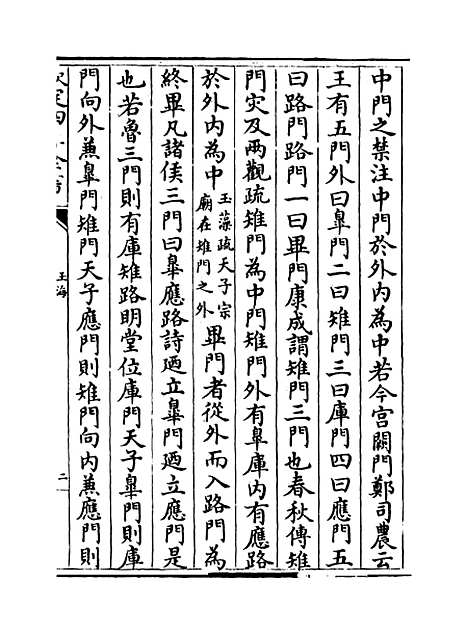 中門之禁注中門於外内為中若今宫闕門鄭司農云
王有五門外曰臯門二曰雉門三曰庫門四曰應門五
曰路門路門一曰畢門康成謂雉門三門也春秋傳雉
門灾及兩觀疏雉門為中門雉門外有臯庫内有應路
於外内為中玉藻疏天子宗廟在雉門之外畢門者從外而入路門為
終畢凡諸侯三門曰臯應路詩迺立臯門迺立應門是
也若魯三門則有庫雉路明堂位庫門天子臯門則庫
門向外兼臯門雉門天子應門則雉門向内兼應門則
玉海
二